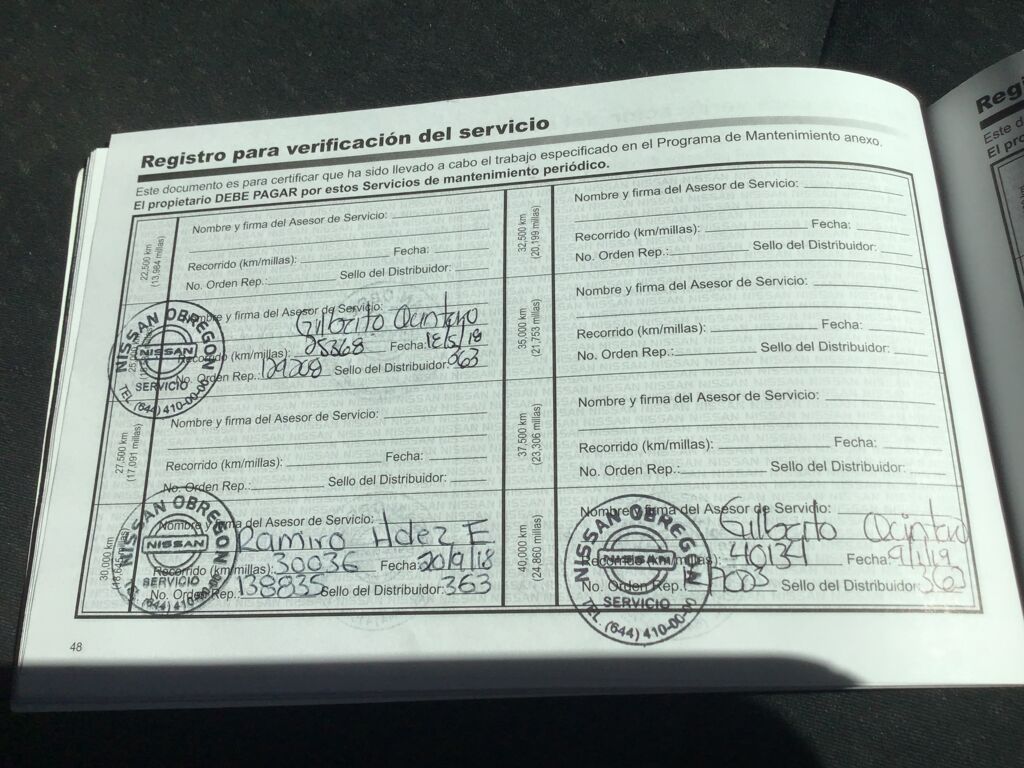 Registro para verificación del servicio
Este documento es para certificar que ha sido llevado a cabo el trabajo especificado en el Programa de Mantenimiento anexo.
El propietario DEBE PAGAR por estos Servicios de mantenimiento periódico.
22,500 km
(13,984 millas)
Nombre y firma del Asesor de Servicio:
Recorrido (km/millas): Fecha:
No. Orden Rep.: Sello del Distribuidor:
NISSAN OBREGON
NISSAN
SERVICIO
TEL. (644) 410-00-00
Nombre y firma del Asesor de Servicio:
Gilberto Quintero
Recorrido (km/millas): 25368 Fecha: 18/5/18
No. Orden Rep.: 129208 Sello del Distribuidor: 363
27,500 km
(17,091 millas)
Nombre y firma del Asesor de Servicio:
Recorrido (km/millas): Fecha:
No. Orden Rep.: Sello del Distribuidor:
30,000 km
(18,645 millas)
NISSAN OBREGON
NISSAN
SERVICIO
(644) 410-00-00
Nombre y firma del Asesor de Servicio:
Ramiro Hdez E
Recorrido (km/millas): 30036 Fecha: 20/9/18
No. Orden Rep.: 138835 Sello del Distribuidor: 363
32,500 km
(20,199 millas)
Nombre y firma del Asesor de Servicio:
Recorrido (km/millas): Fecha:
No. Orden Rep.: Sello del Distribuidor:
35,000 km
(21,753 millas)
Nombre y firma del Asesor de Servicio:
Recorrido (km/millas): Fecha:
No. Orden Rep.: Sello del Distribuidor:
37,500 km
(23,306 millas)
Nombre y firma del Asesor de Servicio:
Recorrido (km/millas): Fecha:
No. Orden Rep.: Sello del Distribuidor:
40,000 km
(24,860 millas)
NISSAN OBREGON
NISSAN
SERVICIO
TEL. (644) 410-00-00
Nombre y firma del Asesor de Servicio:
Gilberto Quintero
Recorrido (km/millas): 40134 Fecha: 9/1/19
No. Orden Rep.: Sello del Distribuidor: 363
48
Regi
Este d
El pro